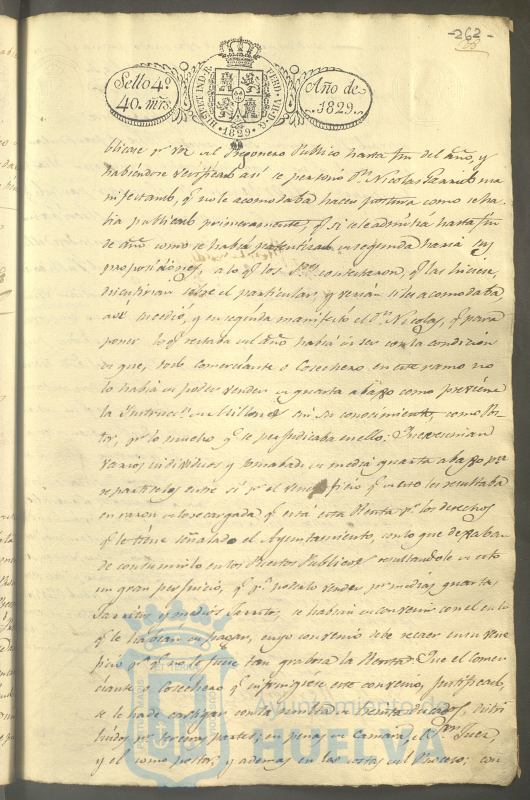 -262-
Sello 4º
40. mrs.
HISP. ET IND. R. FERD. VII. D. G.
1829
Año de
1829.
blicase pr voz del Pregonero Publico hasta fin del año, y
habiendose verificado así se personó Dn Nicolas manifestando, qe no le acomodaba hacer postura como se habia publicado primeramente; qe si se le admitia hasta fin
de año como se habia en segunda haria sus
proposiciones, a lo qe los Sres contestaron, qe las hiciese,
discutirian sobre el particular, y verian si les acomodaba
así sucedió, y en segunda manifestó el Dn Nicolas, qe para
poner lo qe restaba del año habia de ser con la condicion
de que, todo Comerciante o Cosechero en este ramo no
lo habia de poder vender de quarta abajo como previene
la Instruccn de Millones sin su conocimiento, como Postor, pr lo mucho qe se perjudicaba en ello: Que se reunian
varios individuos y tomaban de media quarta abajo para
repartirlos entre sí pr el veneficio qe en esto les resultaba
en razon de lo recargada qe está esta Renta pr los derechos
qe le tiene señalado el Ayuntamiento, con lo que dejaban
de consumirlo en los Puestos Publicos resultandole en esto
un gran perjuicio, qe pa poderlo vender pr medias quartas,
Jarritos y medios Jarritos, se habian de convenir con el en lo
qe le habian de pagar, cuyo convenio debe recaer en su veneficio pa qe no le fuese tan grabosa la Renta: Que el Comerciante o Cosechero qe infringiese este convenio, justificado,
se le ha de castigar con la pena de treinta ducados, distribuidos pr terceras partes; en penas de Camara, el Sor Juez
y el como postor; y ademas en las costas del Proceso; con
Ayuntamiento de
HUELVA